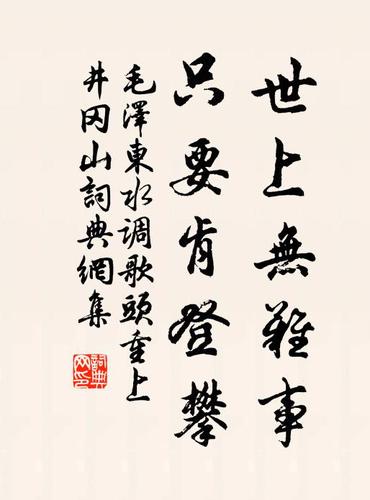 世上無難事
只要肯登攀
毛澤東水调歌頭重上
井冈山詞典網集
詞典網印